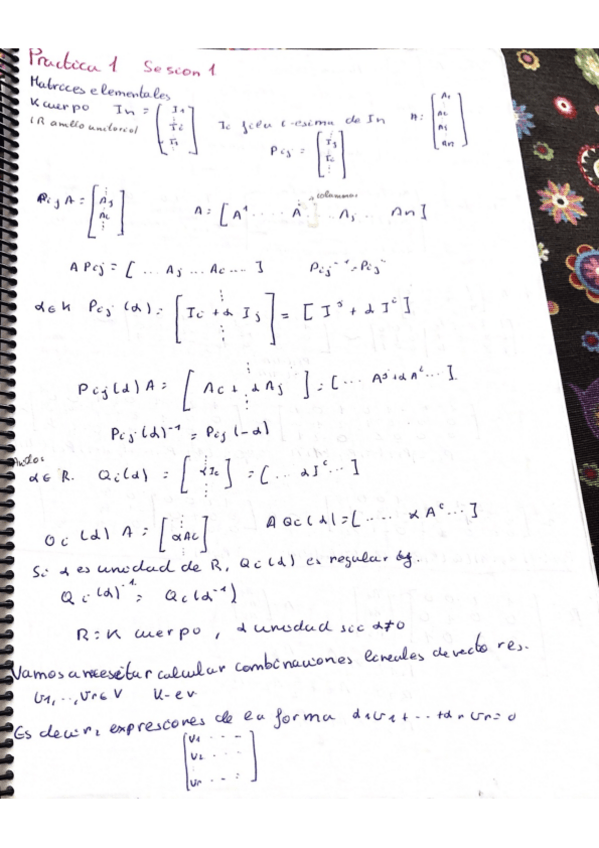 Practica 1 Sesion 1
Matrices elementales
K cuerpo In = [I1 ⋮ Ii ⋮ In] Ii fila i-esima de In A: [A1 ⋮ Ai Aj ⋮ An]
(R anillo unitario)
Pij = [⋮ Ij ⋮ Ii ⋮]
Pij A = [⋮ Aj Ai ⋮] A = [A¹ .... A .. Aj ... An]
columnas
A Pij = [ ... Aj ... Ai ... ] Pij⁻¹ = Pij
α ∈ K Pij (α) = [⋮ Ii + α Ij ⋮] = [ Iʲ + α Iⁱ ]
Pij (α) A = [⋮ Ai + αAj ⋮] = [ ... Aʲ + α Aⁱ ... ]
Pij (α)⁻¹ = Pij (-α)
α ∈ R. Qi (α) = [⋮ αIi ⋮] = [ ... α Iⁱ ... ]
Qi (α) A = [⋮ αAi ⋮] A Qi (α) = [ .... α Aⁱ ... ]
Si α es unidad de R, Qi (α) es regular
Qi (α)⁻¹ = Qi (α⁻¹)
R = K cuerpo, α unidad sii α≠0
Vamos a necesitar calcular combinaciones lineales de vectores.
v1, .., vr ∈ V K-ev
Es decir, expresiones de la forma α1v1 + ... + αr vr = 0
[v1 - - - v2 - - - ⋮ vr - - -]